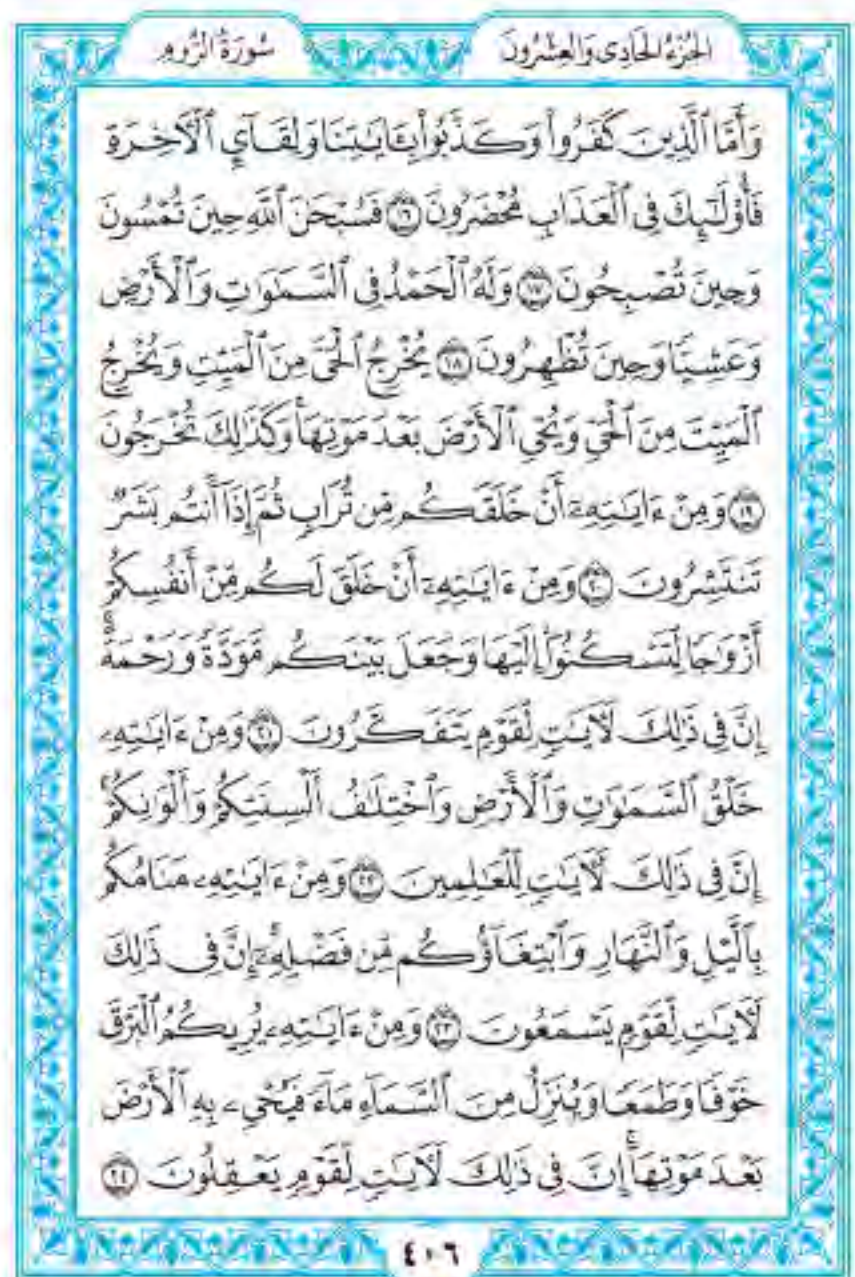 الجزء الحادي والعشرون
سورة الروم
وَأَمَّا ٱلَّذِينَ كَفَرُواْ وَكَذَّبُواْ بِـَٔايَٰتِنَا وَلِقَآيِٕ ٱلۡأٓخِرَةِ
فَأُوْلَٰٓئِكَ فِي ٱلۡعَذَابِ مُحۡضَرُونَ ١٦ فَسُبۡحَٰنَ ٱللَّهِ حِينَ تُمۡسُونَ
وَحِينَ تُصۡبِحُونَ ١٧ وَلَهُ ٱلۡحَمۡدُ فِي ٱلسَّمَٰوَٰتِ وَٱلۡأَرۡضِ
وَعَشِيّٗا وَحِينَ تُظۡهِرُونَ ١٨ يُخۡرِجُ ٱلۡحَيَّ مِنَ ٱلۡمَيِّتِ وَيُخۡرِجُ
ٱلۡمَيِّتَ مِنَ ٱلۡحَيِّ وَيُحۡيِ ٱلۡأَرۡضَ بَعۡدَ مَوۡتِهَاۚ وَكَذَٰلِكَ تُخۡرَجُونَ
١٩ وَمِنۡ ءَايَٰتِهِۦٓ أَنۡ خَلَقَكُم مِّن تُرَابٖ ثُمَّ إِذَآ أَنتُم بَشَرٞ
تَنتَشِرُونَ ٢٠ وَمِنۡ ءَايَٰتِهِۦٓ أَنۡ خَلَقَ لَكُم مِّنۡ أَنفُسِكُمۡ
أَزۡوَٰجٗا لِّتَسۡكُنُوٓاْ إِلَيۡهَا وَجَعَلَ بَيۡنَكُم مَّوَدَّةٗ وَرَحۡمَةًۚ
إِنَّ فِي ذَٰلِكَ لَأٓيَٰتٖ لِّقَوۡمٖ يَتَفَكَّرُونَ ٢١ وَمِنۡ ءَايَٰتِهِۦ
خَلۡقُ ٱلسَّمَٰوَٰتِ وَٱلۡأَرۡضِ وَٱخۡتِلَٰفُ أَلۡسِنَتِكُمۡ وَأَلۡوَٰنِكُمۡۚ
إِنَّ فِي ذَٰلِكَ لَأٓيَٰتٖ لِّلۡعَٰلِمِينَ ٢٢ وَمِنۡ ءَايَٰتِهِۦ مَنَامُكُم
بِٱلَّيۡلِ وَٱلنَّهَارِ وَٱبۡتِغَآؤُكُم مِّن فَضۡلِهِۦٓۚ إِنَّ فِي ذَٰلِكَ
لَأٓيَٰتٖ لِّقَوۡمٖ يَسۡمَعُونَ ٢٣ وَمِنۡ ءَايَٰتِهِۦ يُرِيكُمُ ٱلۡبَرۡقَ
خَوۡفٗا وَطَمَعٗا وَيُنَزِّلُ مِنَ ٱلسَّمَآءِ مَآءٗ فَيُحۡيِۦ بِهِ ٱلۡأَرۡضَ
بَعۡدَ مَوۡتِهَآۚ إِنَّ فِي ذَٰلِكَ لَأٓيَٰتٖ لِّقَوۡمٖ يَعۡقِلُونَ ٢٤
٤٠٦